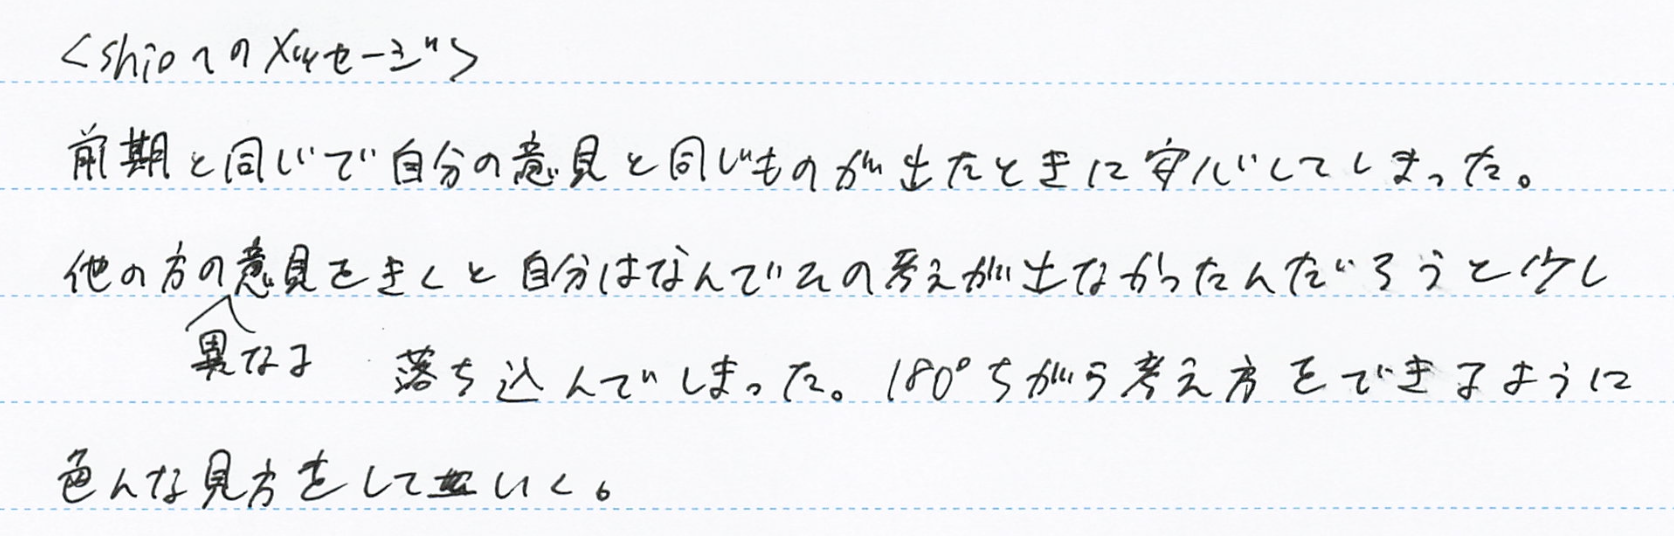 <shioへのメッセージ>
前期と同じで自分の意見と同じものが出たときに安心してしまった。
他の方の異なる意見をきくと自分はなんでその考えが出なかったんだろうと少し
落ち込んでしまった。180°ちがう考え方をできるように
色んな見方をしていく。